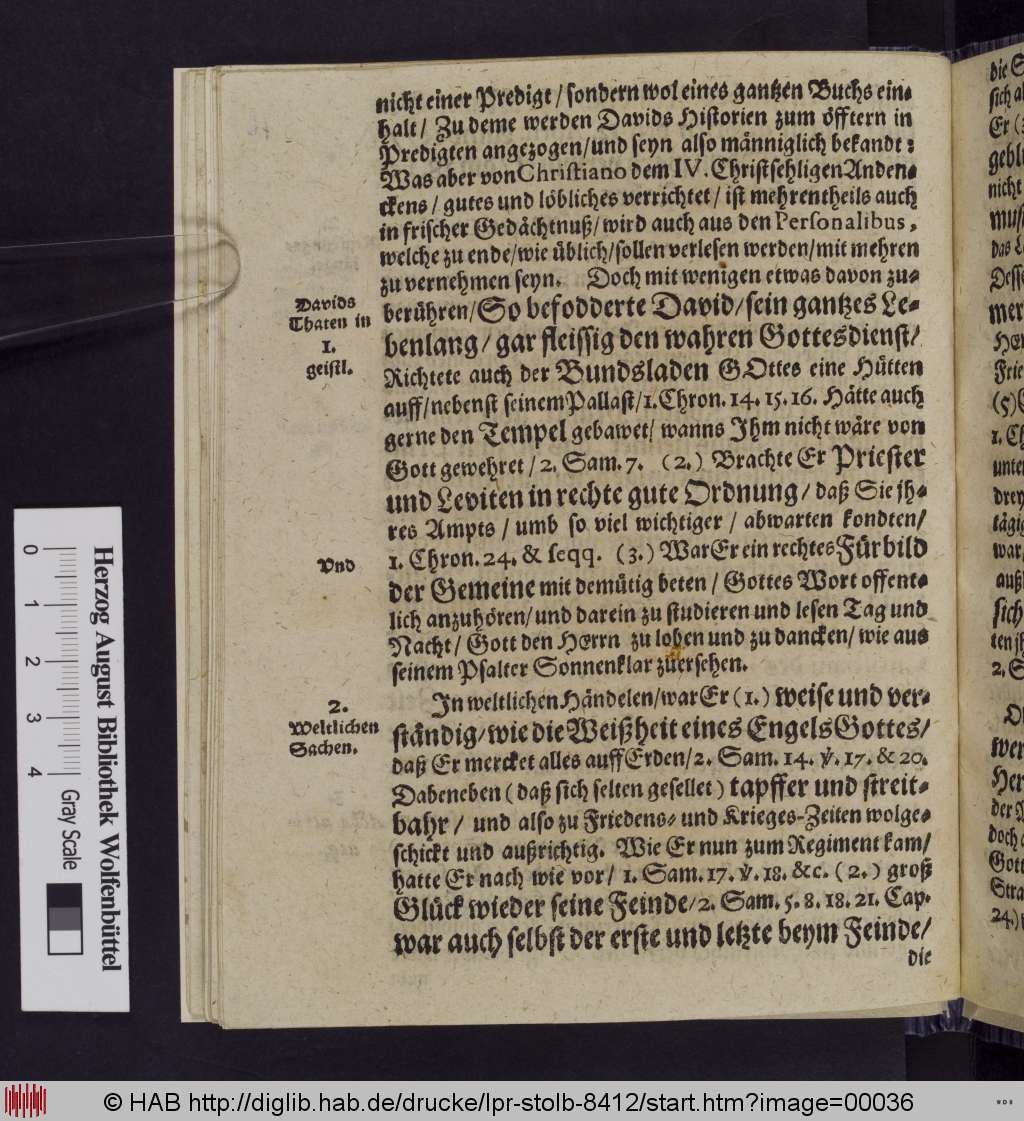 nicht einer Predigt / sondern wol eines gantzen Buchs ein-
halt / Zu deme werden Davids Historien zum öfftern in
Predigten angezogen / und seyn also männiglich bekandt:
Was aber von Christiano dem IV. Christsehligen Anden-
ckens / gutes und löbliches verrichtet / ist mehrentheils auch
in frischer Gedächtnuß / wird auch aus den Personalibus,
welche zu ende / wie üblich / sollen verlesen werden / mit mehren
zu vernehmen seyn. Doch mit wenigen etwas davon zu-
berühren / So befodderte David / sein gantzes Le-
benlang / gar fleissig den wahren Gottesdienst /
Richtete auch der Bundsladen GOttes eine Hütten
auff / nebenst seinem Pallast / 1. Chron. 14. 15. 16. Hätte auch
gerne den Tempel gebawet / wanns Ihm nicht wäre von
Gott gewehret / 2. Sam. 7. (2.) Brachte Er Priester
und Leviten in rechte gute Ordnung / daß Sie jh-
res Ampts / umb so viel wichtiger / abwarten kondten /
1. Chron. 24. & seqq. (3.) War Er ein rechtes Fürbild
der Gemeine mit demütig beten / Gottes Wort offent-
lich anzuhören / und darein zu studieren und lesen Tag und
Nacht / Gott den HErrn zu loben und zu dancken / wie aus
seinem Psalter Sonnenklar zuersehen.
In weltlichen Händelen / war Er (1.) weise und ver-
ständig / wie die Weißheit eines Engels Gottes /
daß Er mercket alles auff Erden / 2. Sam. 14. ℣. 17. & 20.
Dabeneben (daß sich selten gesellet) tapffer und streit-
bahr / und also zu Friedens- und Krieges-Zeiten wolge-
schickt und außrichtig. Wie Er nun zum Regiment kam /
hatte Er nach wie vor / 1. Sam. 17. ℣. 18. &c. (2.) groß
Glück wieder seine Feinde / 2. Sam. 5. 8. 18. 21. Cap.
war auch selbst der erste und letzte beym Feinde /
die
Davids
Thaten in
1.
geistl.
Vnd
2.
Weltlichen
Sachen.
Herzog August Bibliothek Wolfenbüttel
0 1 2 3 4 Gray Scale
© HAB http://diglib.hab.de/drucke/lpr-stolb-8412/start.htm?image=00036